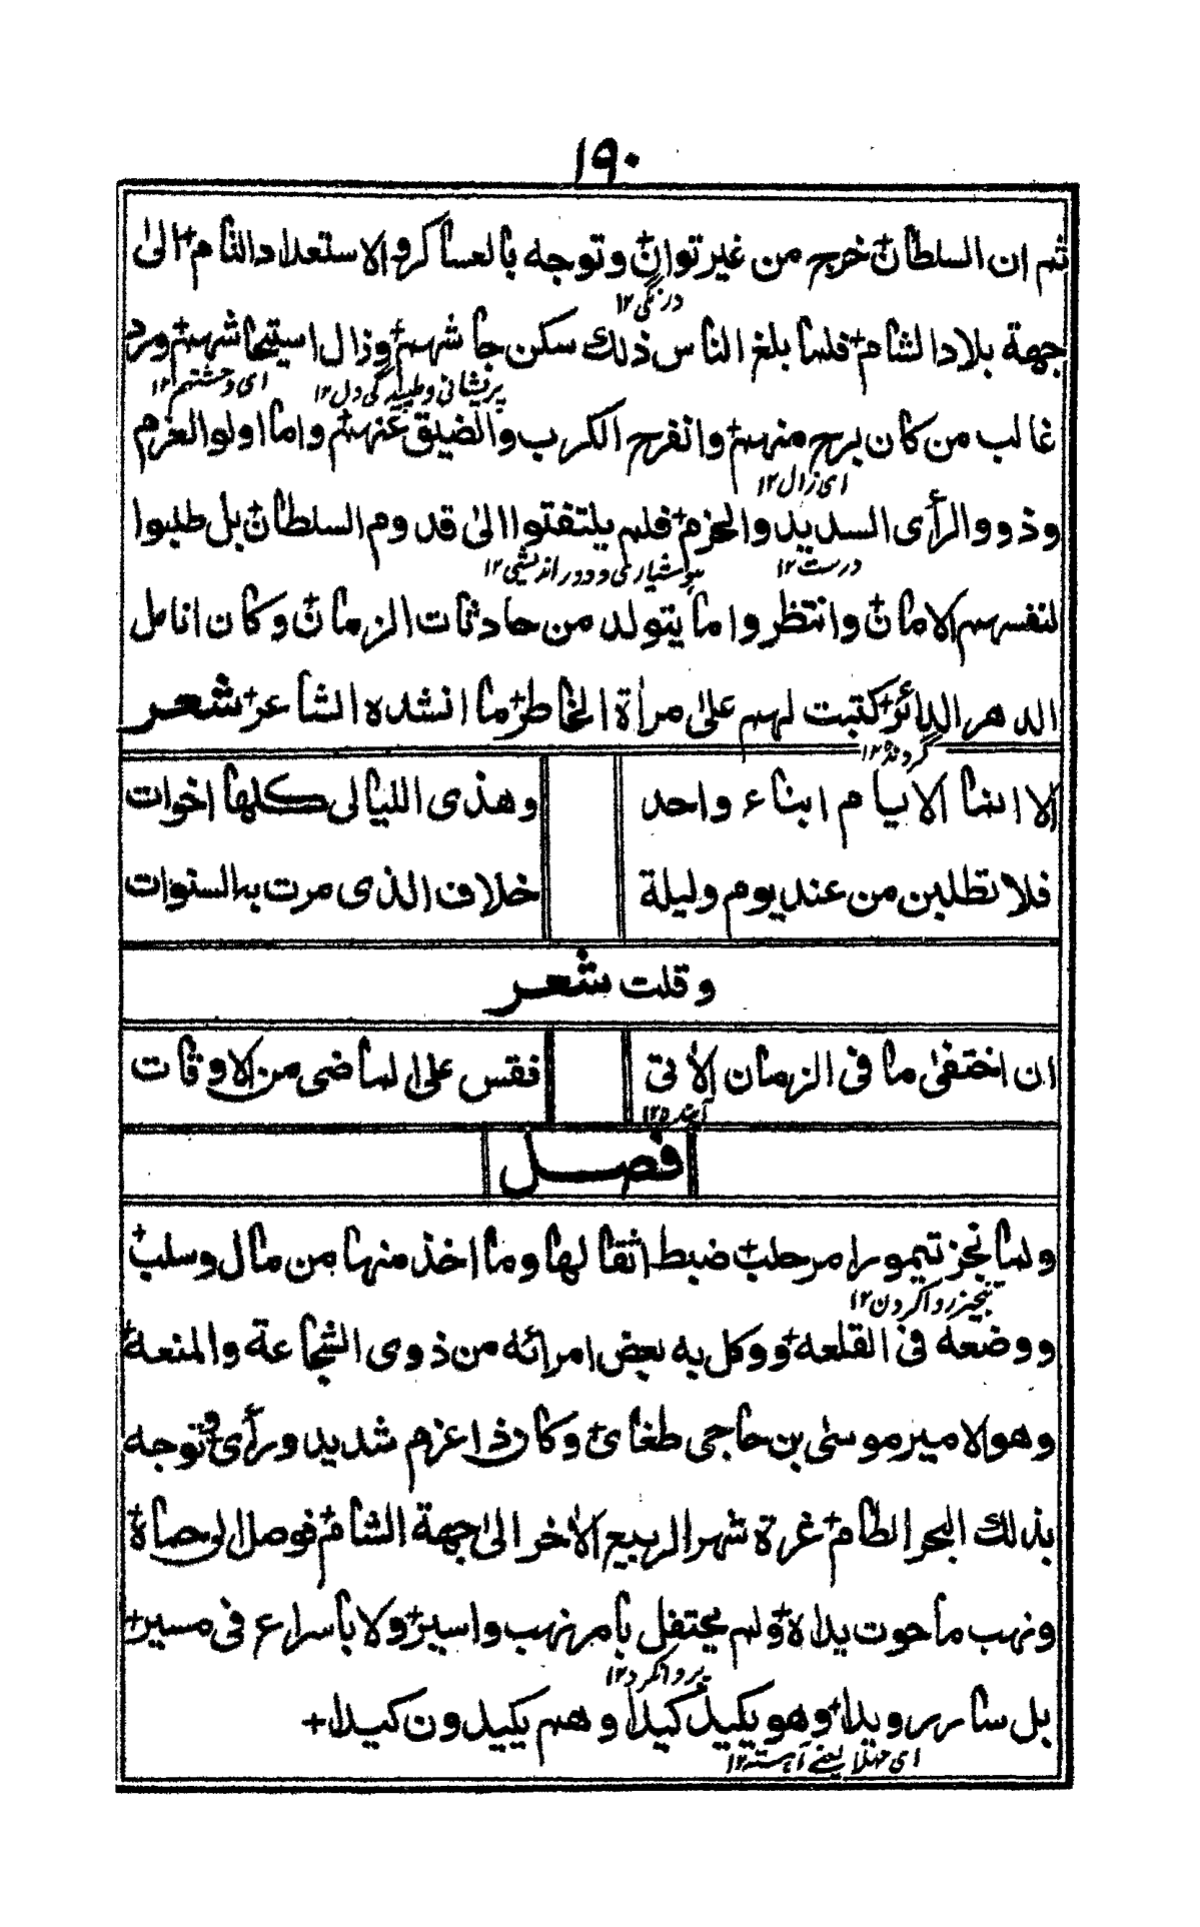 ١٩٠
ثم ان السلطان+ خرج من غير توان+ وتوجه بالعساكر والاستعداد التام+ الى
درنگی١٢
جهة بلاد الشام+ فلما بلغ الناس ذلك سكن جاشهم+ وزال استيحاشهم+ ورد
پریشانی و طپیدگی دل١٢ ای وحشتهم١٢
غالب من كان برح منهم+ وانفرج الكرب والضيق عنهم+ واما اولو العزم
ای زال١٢
وذوو الرأى السديد والحزم+ فلم يلتفتوا الى قدوم السلطان+ بل طلبوا
درست١٢ ہوشیاری و دور اندیشی١٢
لنفسهم الامان+ وانتظروا ما يتولد من حادثات الزمان+ وكان انامل
الدهر الدائر+ كتبت لهم على مرأة الخاطر+ ما انشده الشاعر+ شعر
گردنده١٢
الا انما الايام ابناء واحد وهذى الليالى كلها اخوات
فلا تطلبن من عند يوم وليلة خلاف الذى مرت به السنوات
وقلت شعر
ان اختفى ما فى الزمان الأتى فقس على الماضى من الاوقات
آینده١٢
فصل
ولما نجز تيمور امر حلب+ ضبط اثقالها وما اخذ منها من مال وسلب+
تنجیز روا کردن١٢
ووضعه فى القلعه+ ووكل به بعض امرائه من ذوى الشجاعة والمنعه+
وهو الامير موسى بن حاجى طغاى+ وكان ذا عزم شديد ورأى+ وتوجه
بذلك البحر الطام+ غرة شهر الربيع الأخر الى جهة الشام+ فوصل الى حماة+
ونهب ما حوت يداه+ ولم يحتفل بامر نهب واسير+ ولا باسراع فى مسير+
پروا نکرد١٢
بل سار رويدا+ وهو يكيد كيدا وهم يكيدون كيدا+
ای مهلا یعنے آہستہ١٢